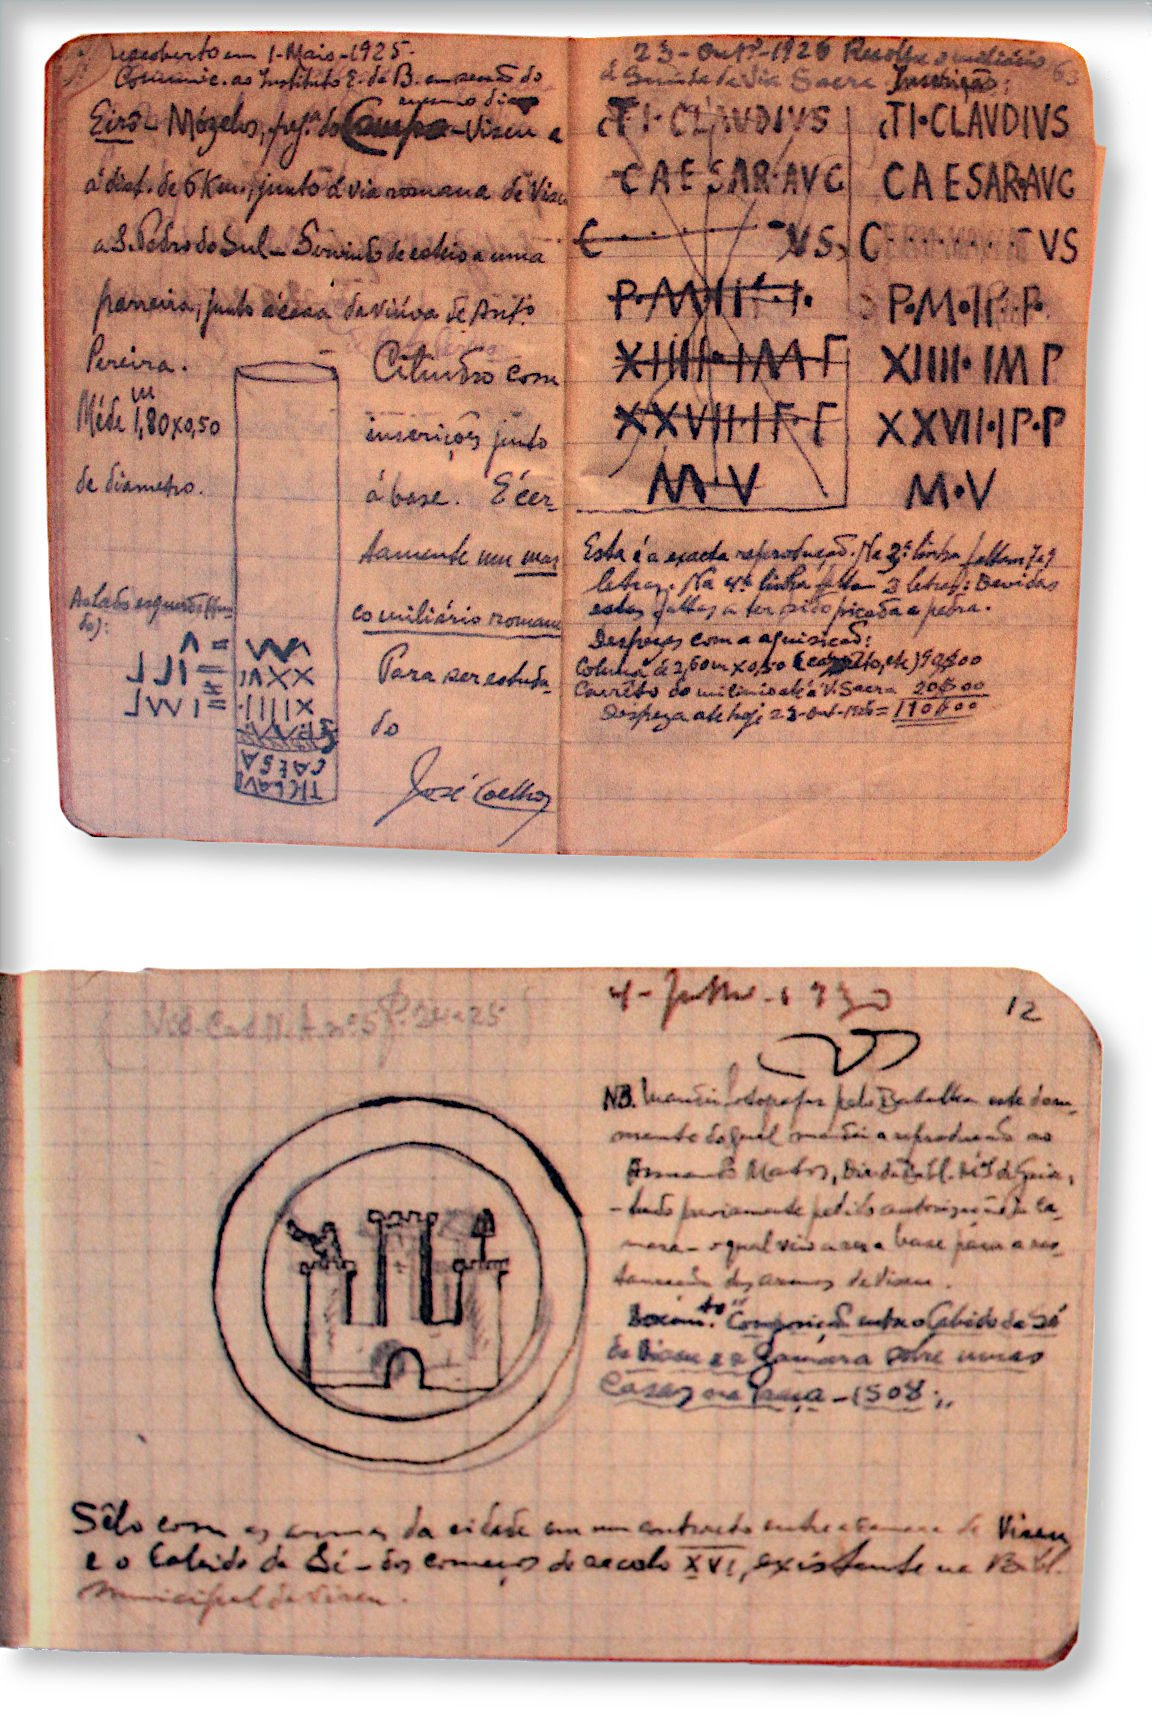 descoberto em 1-Maio-1925.
Comunic. ao Instituto E. da B. em sessão do
mesmo dia
Eirô - Mózelos, freg.ª do Campo - Viseu e
á dist. de 6 Km, junto á via romana de Viseu
a S. Pedro do Sul - Servindo de esteio a uma
parreira, junto á casa da viúva de Antº.
Pereira.
Méde 1,80x0,50
m
de diametro.
Cilindro com
inscrições junto
á base. É cer-
tamente um mar-
co miliário romano
Para ser estuda-
do
José Coelho
Ao lado esquerdo
CAESA
TICLAVD
23-Outº-1926 Recolha o miliário
63
á da Via Sacra Inscrição:
TI·CLAVDIVS
CAESAR·AVG
C . . . VS
P·M·II·I·
XIIII·IM
XXVII·I
M·V
TI·CLAVDIVS
CAESAR·AVG
C VS
P·M·II·P·
XIIII·IMP
XXVII·IP·P
M·V
Esta é a exacta reprodução. Na 3ª linha faltam 7 a 9
letras. Na 4ª linha falta 2 letras: Devidas
estas faltas a ter sido picada a pedra.
Despezas com a aquisição:
Coluna de 2,60m x 0,50 (carreto, etc) 90$00
Carrêto do miliario até á V. Sacra 20$00
Despeza até hoje 23-Out-1926 = 110$00
4-Julho-1930
12
NB. Mandei fotografar pelo Batalha este docu-
mento do qual mandei a reprodução ao
Armando Matos, Dir. da Bibl. M.al de Gaia,
- tendo previamente pedido autorização á Ca-
mara - o qual veio a ser a base para a res-
tauração das armas de Viseu.
Docum.to "Composição entre o Cabido da Sé
de Viseu e a Camara sobre umas
Casas na Praça - 1508;"
Sêlo com as armas da cidade em um contracto entre a Camara de Viseu
e o Cabido da Sé - dos começos do seculo XVI, existente na Bibl.
Municipal de Viseu.